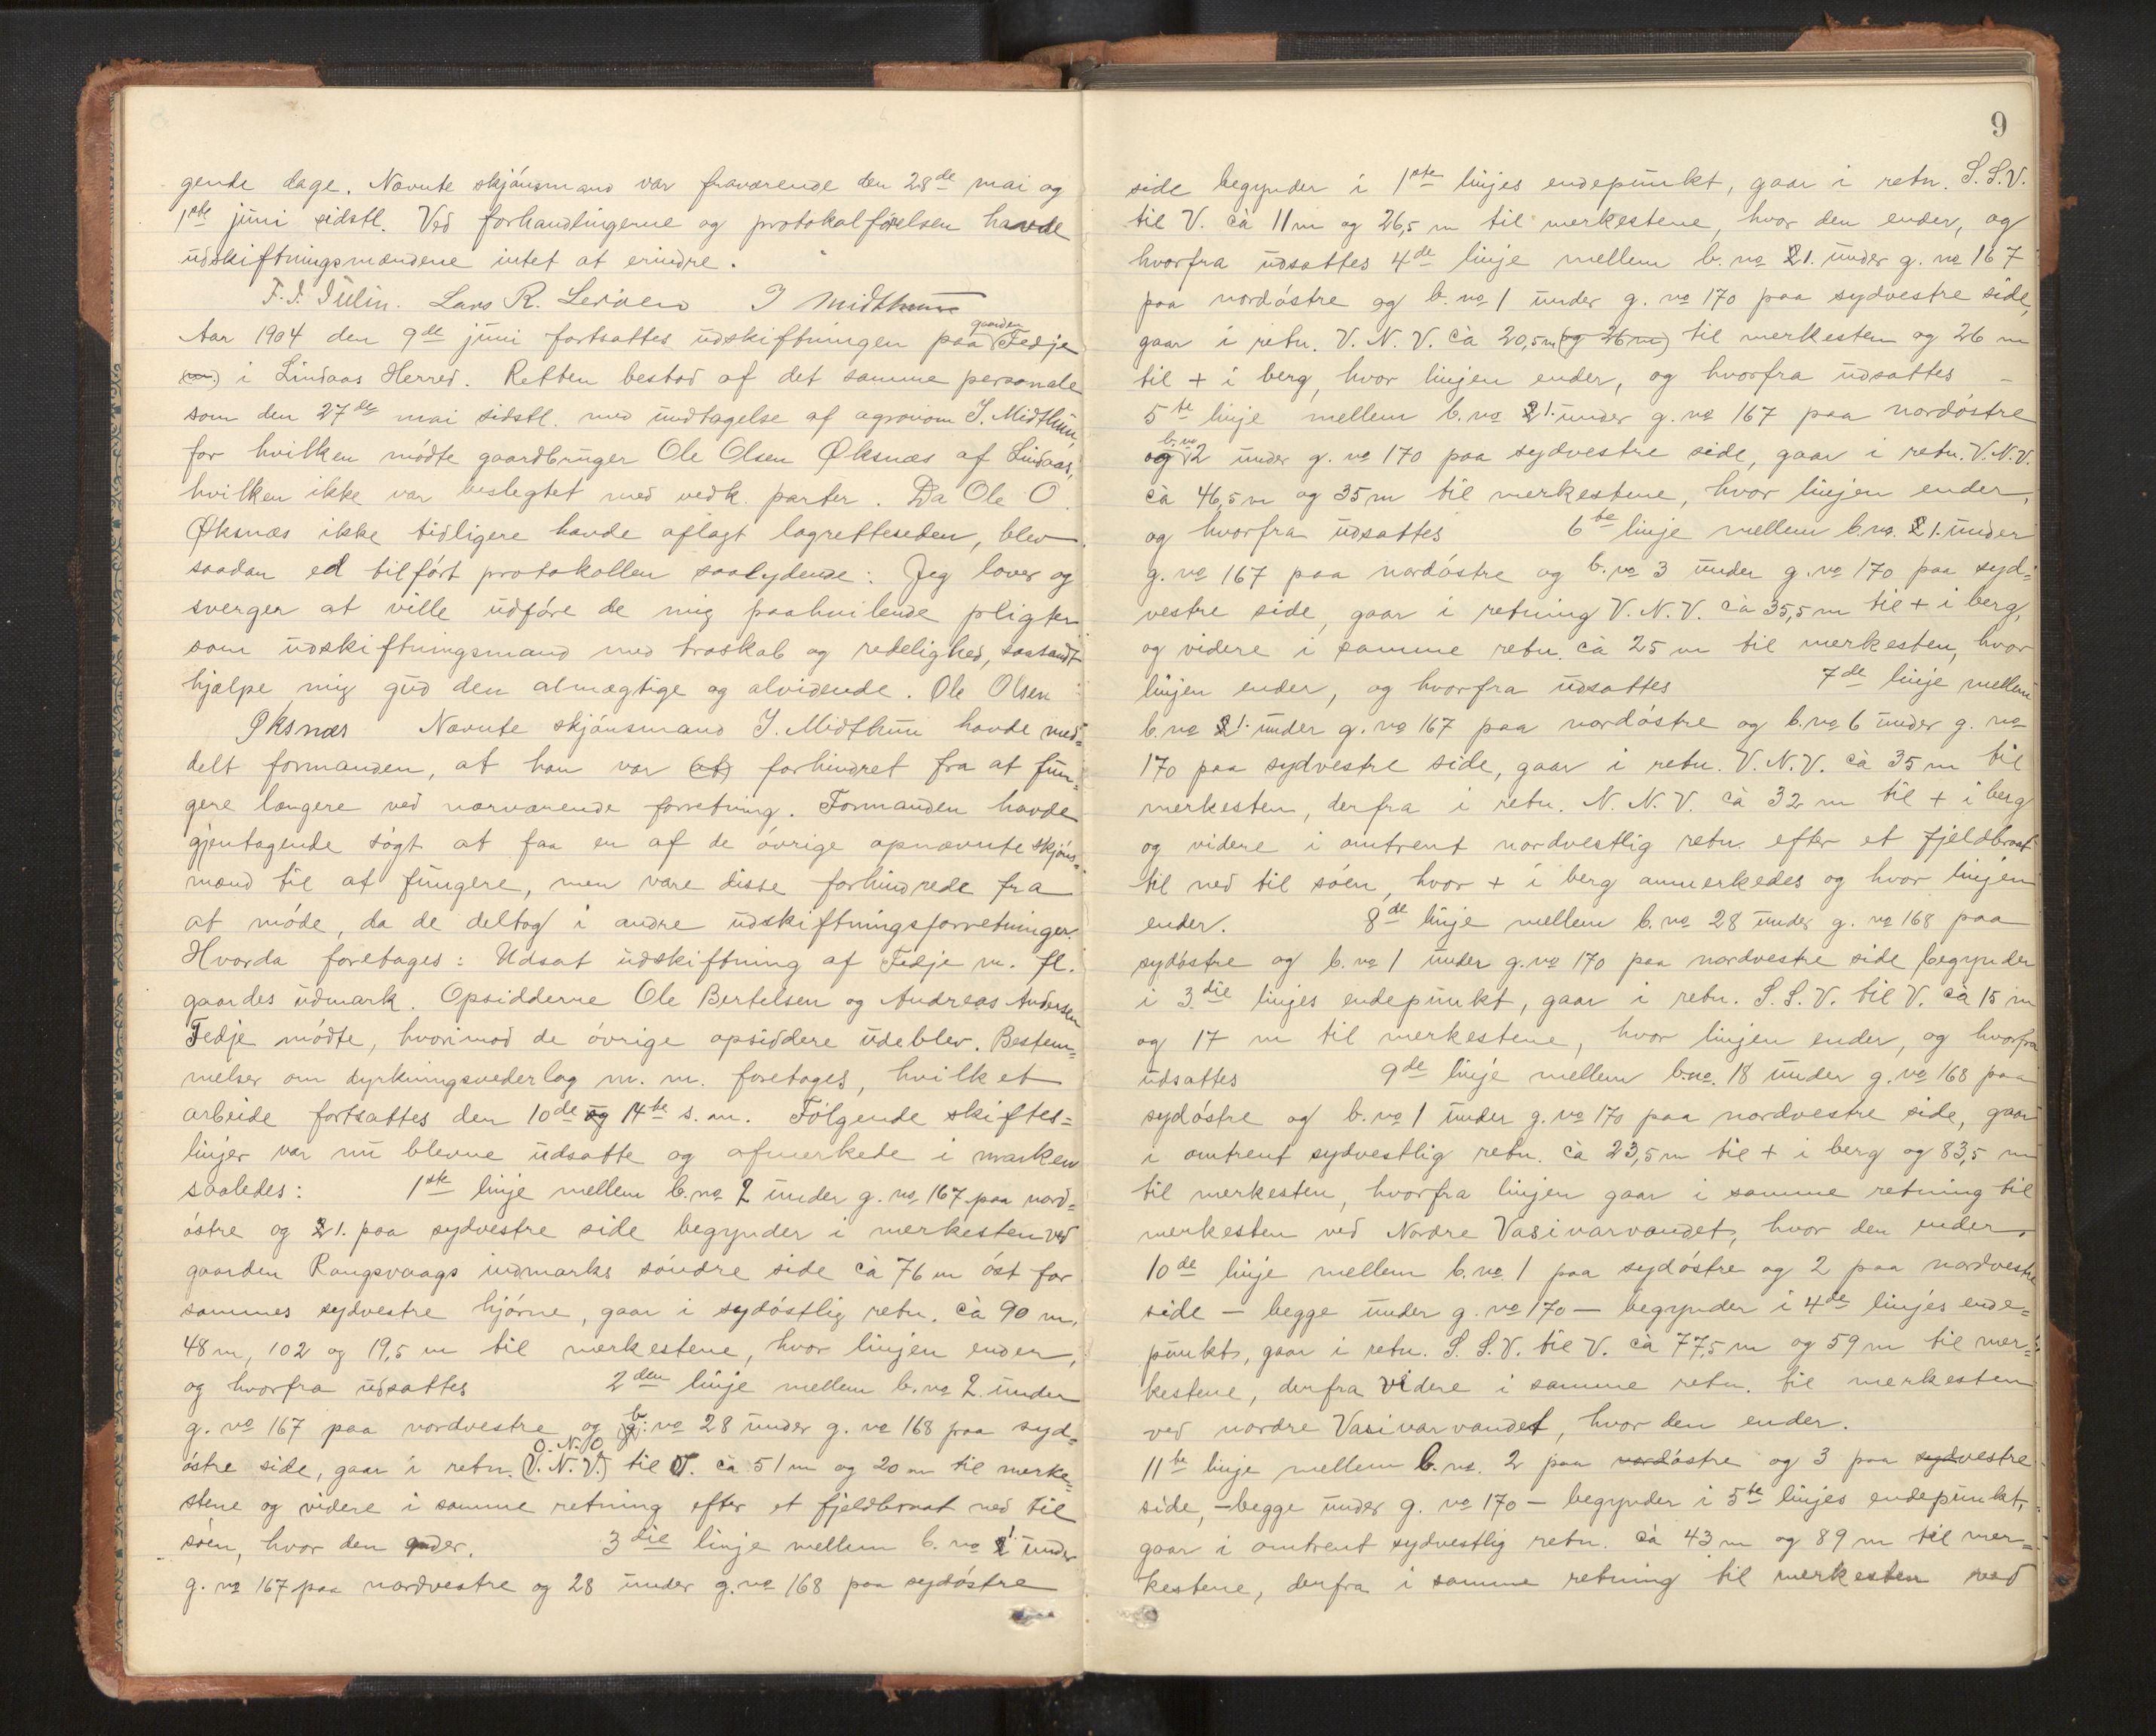 gende dage. Nævnte skjønsmand var fraværende den 28de mai og
1ste juni sidstl. Ved forhandlingerne og protokolførelsen havde
udskiftningsmændene intet at erindre.
F. I. Iulin. Lars R. Lerøen I Midthun
Aar 1904 den 9de juni fortsattes udskiftningen paa gaarden Fedje
(m.) i Lindaas Herred. Retten bestod af det samme personale
som den 27de mai sidstl. med undtagelse af agronom I. Midthun,
for hvilken mødte gaardbruger Ole Olsen Øksnæs af Lindaas,
hvilken ikke var beslegtet med vedk. parter. Da Ole O.
Øksnæs ikke tidligere havde aflagt lagretteseden, blev
saadan ed tilført protokollen saalydende: Jeg lover og
sverger at ville udføre de mig paahvilende pligter
som udskiftningsmand med troskab og redelighed, saasandt
hjælpe mig gud den almægtige og alvidende. Ole Olsen
Øksnæs Nævnte skjønsmand I. Midthun havde med=
delt formanden, at han var (at) forhindret fra at fun=
gere længere ved nærværende forretning. Formanden havde
gjentagende søgt at faa en af de øvrige opnævnte skjøns=
mænd til at fungere, men vare disse forhindrede fra
at møde, da de deltog i andre udskiftningsforretninger.
Hvorda foretages: Udsat udskiftning af Fedje m. fl.
gaardes udmark. Opsidderne Ole Bertelsen og Andreas Andersen
Fedje mødte, hvorimod de øvrige opsiddere udeblev. Bestem=
melser om dyrkningsvederlag m. m. foretages, hvilket
arbeide fortsattes den 10de og 14te s. m. Følgende skiftes=
linjer var nu blevne udsatte og afmerkede i marken
saaledes: 1ste linje mellem b. no 2 under g. no 167 paa nord=
østre og 21. paa sydvestre side begynder i merkesten ved
gaarden Rongsvaags indmarks søndre side cà 76 m øst for
sammes sydvestre hjørne, gaar i sydøstlig retn. cà 90 m,
48 m, 102 og 19,5 m til merkestene, hvor linjen ender,
og hvorfra udsattes 2den linje mellem b. no 2. under
g. no 167 paa nordvestre og b. no 28 under g. no 168 paa syd=
østre side, gaar i retn. O. N. O (V. N. V.) til O. cà 51 m og 20 m til merke=
stene og videre i samme retning efter et fjeldbrat ned til
søen, hvor den ender. 3die linje mellem b. no 21. under
g. no 167 paa nordvestre og 28 under g. no 168 paa sydøstre
9
side begynder i 1ste linjes endepunkt, gaar i retn. S. S. V.
til V. cà 11 m og 26,5 m til merkestene, hvor den ender, og
hvorfra udsattes 4de linje mellem b. no 21. under g. no 167
paa nordøstre og b. no 1 under g. no 170 paa sydvestre side,
gaar i retn. V. N. V. cà 20,5 m (og 26 m) til merkesten og 26 m
til + i berg, hvor linjen ender, og hvorfra udsattes –
5te linje mellem b. no 21. under g. no 167 paa nordøstre
og b. no 2 under g. no 170 paa sydvestre side, gaar i retn. V. N. V.
cà 46,5 m og 35 m til merkestene, hvor linjen ender,
og hvorfra udsattes 6te linje mellem b. no. 21. under
g. no 167 paa nordøstre og b. no 3 under g. no 170 paa syd=
vestre side, gaar i retning V. N. V. cà 35,5 m til + i berg,
og videre i samme retn. cà 25 m til merkesten, hvor
linjen ender, og hvorfra udsattes 7de linje mellem
b. no 21. under g. no 167 paa nordøstre og b. no 6 under g. no
170 paa sydvestre side, gaar i retn. V. N. V. cà 35 m til
merkesten, derfra i retn. N. N. V. cà 32 m til + i berg
og videre i omtrent nordvestlig retn. efter et fjeldbrat
til ned til søen, hvor + i berg anmerkedes og hvor linjen
ender. 8de linje mellem b. no 28 under g. no 168 paa
sydøstre og b. no 1 under g. no 170 paa nordvestre side begynder
i 3die linjes endepunkt, gaar i retn. S. S. V. til V. cà 15 m
og 17 m til merkestene, hvor linjen ender, og hvorfra
udsattes 9de linje mellem b. no. 18 under g. no 168 paa
sydøstre og b. no 1 under g. no 170 paa nordvestre side, gaar
i omtrent sydvestlig retn. cà 23,5 m til + i berg og 83,5 m
til merkesten, hvorfra linjen gaar i samme retning til
merkesten ved Nordre Vasivarvandet, hvor den ender.
10de linje mellem b. no. 1 paa sydøstre og 2 paa nordvestre
side – begge under g. no 170 – begynder i 4de linjes ende=
punkt, gaar i retn. S. S. V. til V. cà 77,5 m og 59 m til mer=
kestene, derfra videre i samme retn. til merkesten
ved nordre Vasivarvandet, hvor den ender.
11te linje mellem b. no. 2 paa nordøstre og 3 paa sydvestre
side, – begge under g. no 170 – begynder i 5te linjes endepunkt,
gaar i omtrent sydvestlig retn. cà 43 m og 89 m til mer=
kestene, derfra i samme retning til merkesten ved